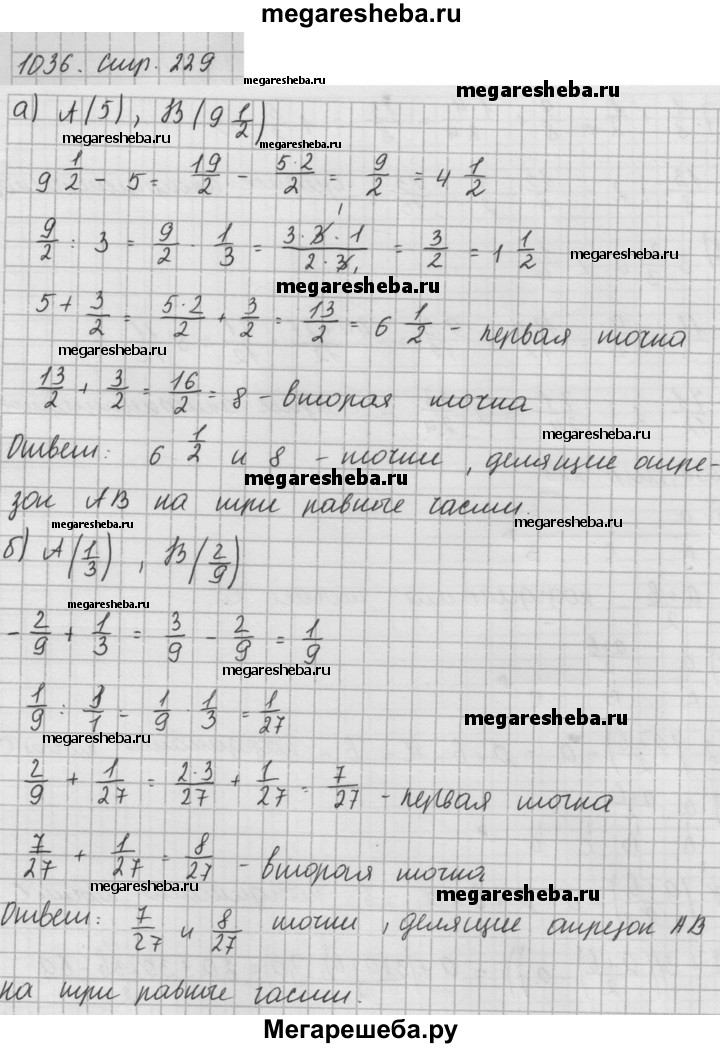 megaresheba.ru
1036. стр. 229
megaresheba.ru
megaresheba.ru
а) A(5), B(9 1/2)
megaresheba.ru
megaresheba.ru
9 1/2 - 5 = 19/2 - 5·2/2 = 9/2 = 4 1/2
9/2 : 3 = 9/2 · 1/3 = 3·3·1/2·3 = 3/2 = 1 1/2
megaresheba.ru
megaresheba.ru
5 + 3/2 = 5·2/2 + 3/2 = 13/2 = 6 1/2 - первая точка
megaresheba.ru
13/2 + 3/2 = 16/2 = 8 - вторая точка
megaresheba.ru
Ответ: 6 1/2 и 8 - точки, делящие отре-
megaresheba.ru
зок AB на три равные части.
megaresheba.ru
megaresheba.ru
б) A(1/3), B(2/9)
megaresheba.ru
- 2/9 + 1/3 = 3/9 - 2/9 = 1/9
megaresheba.ru
1/9 : 3/1 = 1/9 · 1/3 = 1/27
megaresheba.ru
megaresheba.ru
2/9 + 1/27 = 2·3/27 + 1/27 = 7/27 - первая точка
7/27 + 1/27 = 8/27 - вторая точка
megaresheba.ru
megaresheba.ru
Ответ: 7/27 и 8/27 точки, делящие отрезок AB
на три равные части.
Мегарешеба.ру